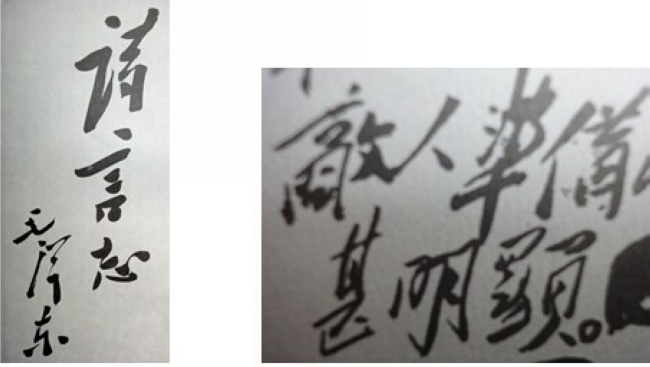 诗言志
毛泽东
敵人準備
甚明顯。